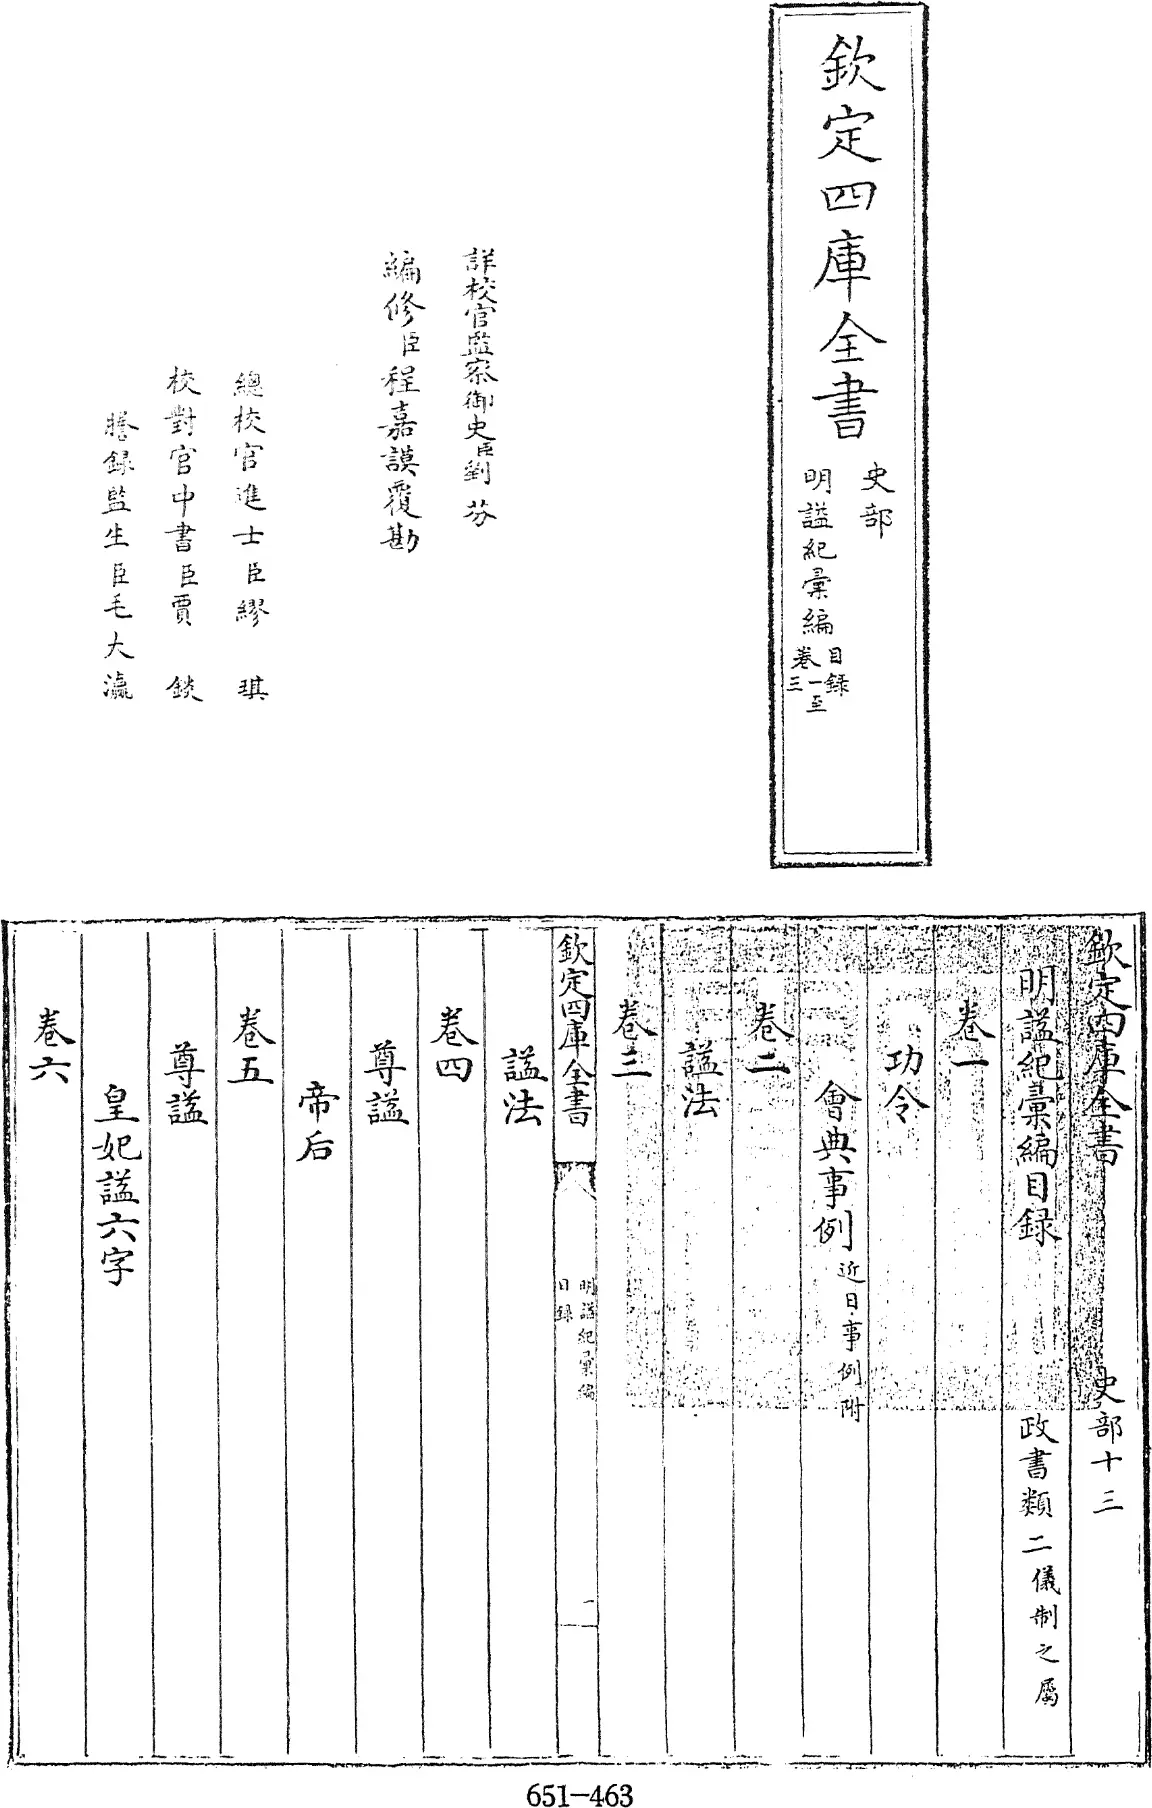 欽定四庫全書
史部
明諡紀彚編
目録
卷一至三
詳校官監察御史臣劉芬
編修臣程嘉謨覆勘
總校官進士臣繆琪
校對官中書臣賈錟
謄録監生臣毛大瀛
欽定四庫全書 史部十三
明諡紀彚編目録 政書類二儀制之屬
卷一
功令
會典事例近日事例附
卷二
諡法
卷三
欽定四庫全書
明諡紀彚編
目録
一
諡法
卷四
尊諡
帝后
卷五
尊諡
皇妃諡六字
卷六
651-463